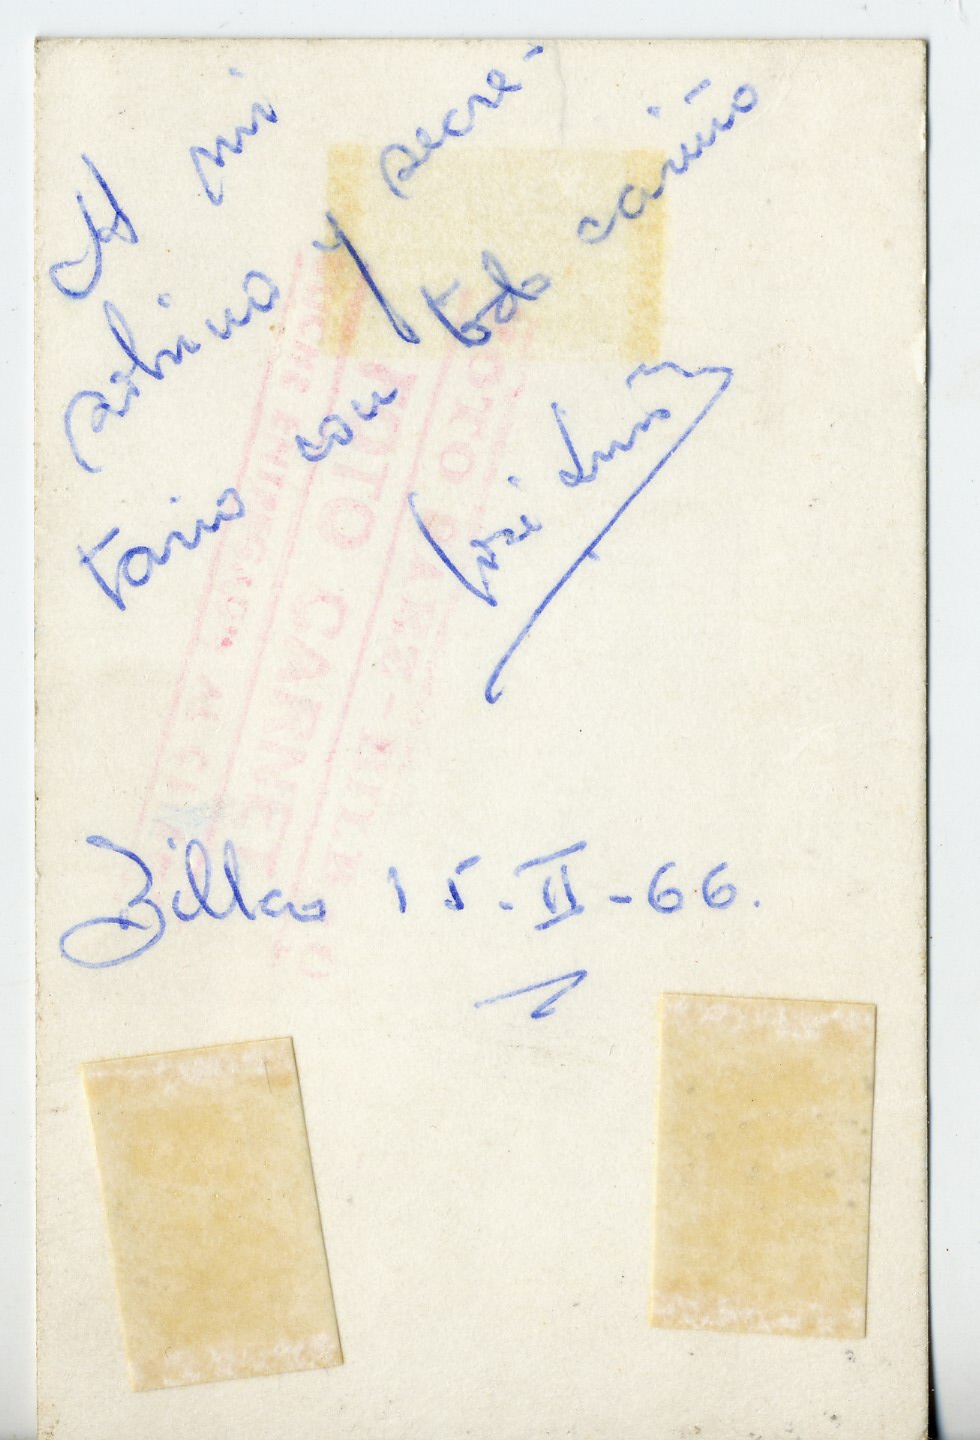 A mi
sobrino y secre-
tario con todo cariño
José Luis
Bilbao 15-II-66.
FOTO CARNET